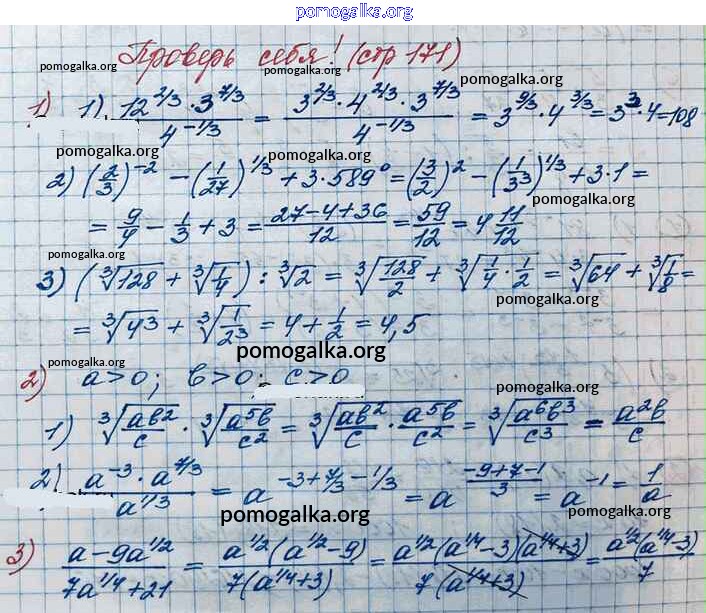 pomogalka.org
Проверь себя! (стр 171)
pomogalka.org pomogalka.org pomogalka.org
1) 1) (12^(2/3) · 3^(7/3)) / 4^(-1/3) = (3^(2/3) · 4^(2/3) · 3^(7/3)) / 4^(-1/3) = 3^(9/3) · 4^(3/3) = 3^3 · 4 = 108
pomogalka.org pomogalka.org pomogalka.org
2) (2/3)^(-2) − (1/27)^(1/3) + 3 · 589^0 = (3/2)^2 − (1/3^3)^(1/3) + 3 · 1 =
pomogalka.org
= 9/4 − 1/3 + 3 = (27−4+36)/12 = 59/12 = 4 11/12
pomogalka.org
3) (∛128 + ∛(1/4)) : ∛2 = ∛(128/2) + ∛(1/4 · 1/2) = ∛64 + ∛(1/8) =
pomogalka.org
= ∛(4^3) + ∛(1/2^3) = 4 + 1/2 = 4,5
pomogalka.org
pomogalka.org
2) a > 0; b > 0; c > 0
pomogalka.org
1) ∛(ab^2/c) · ∛(a^5b/c^2) = ∛(ab^2/c · a^5b/c^2) = ∛(a^6b^3/c^3) = a^2b/c
2) (a^(-3) · a^(7/3)) / a^(1/3) = a^(-3+7/3−1/3) = a^((−9+7−1)/3) = a^(-1) = 1/a
pomogalka.org pomogalka.org
3) (a − 9a^(1/2)) / (7a^(1/4) + 21) = (a^(1/2)(a^(1/2) − 9)) / (7(a^(1/4) + 3)) = (a^(1/2)(a^(1/4) − 3)(a^(1/4) + 3)) / (7(a^(1/4) + 3)) = (a^(1/2)(a^(1/4) − 3)) / 7